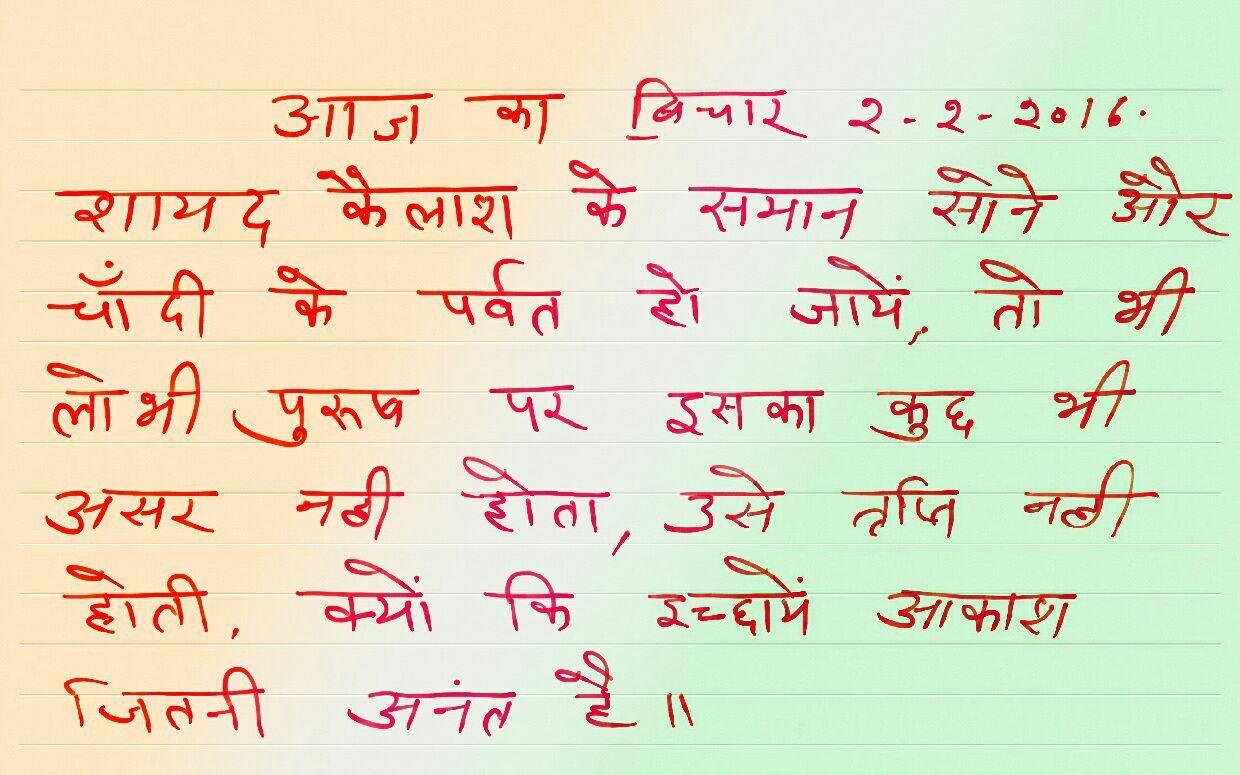 आज का विचार २-२-२०१६.
शायद कैलाश के समान सोने और
चाँदी के पर्वत हो जायें, तो भी
लोभी पुरूष पर इसका कुछ भी
असर नही होता, उसे तृप्ति नही
होती, क्यों कि इच्छायें आकाश
जितनी अनंत है॥